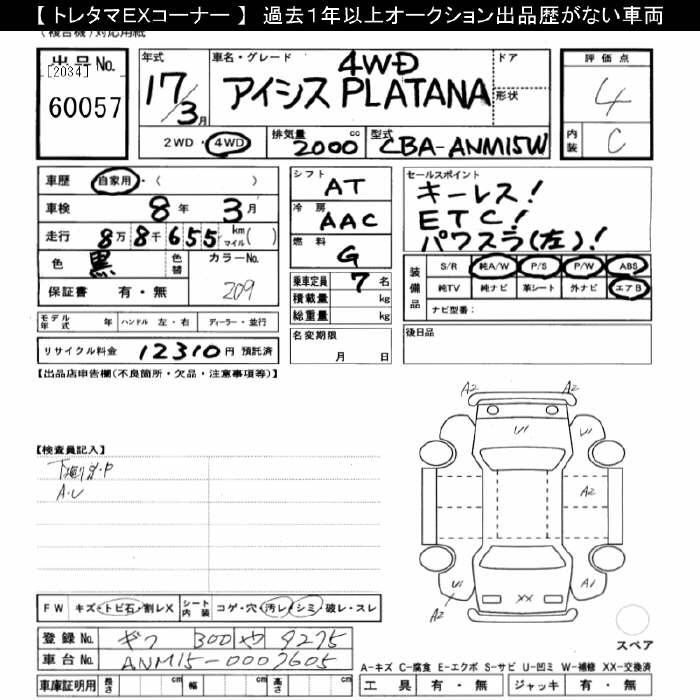 【 トレタマEXコーナー 】 過去1年以上オークション出品歴がない車両
(複合機)対応用紙
出品No.
[2034]
60057
年式
17/3月
車名・グレード
4WD
アイシス PLATANA
ドア
形状
2WD・4WD
排気量 2000 cc
型式 CBA-ANM15W
評価点
4
内装 C
車歴 自家用・( )
車検 8年 3月
走行 8万8千655 km マイル( )
色 黒 色替 カラーNo. 209
保証書 有・無
シフト AT
冷房 AAC
燃料 G
乗車定員 7名
積載量 kg
総重量 kg
セールスポイント
キーレス!
ETC!
パワスラ(左)!
装備品
S/R 純A/W P/S P/W ABS
純TV 純ナビ 革シート 外ナビ エアB
ナビ型番:
モデル年式 年 ハンドル 左・右 ディーラー・並行
名変期限
月 日
後日品
リサイクル料金 12310円 預託済
【出品店申告欄(不良箇所・欠品・注意事項等)】
A2 A2
U1 U1
A2
U1 A1
A2 XX
【検査員記入】
A・U
FW キズ・トビ石・割レX シート内装 コゲ・穴・汚レ・シミ・破レ・スレ
スペア
登録No. ギフ 300 や 9275
車台No. ANM15-0007605
A-キズ C-腐食 E-エクボ S-サビ U-凹ミ W-補修 XX-交換済
車庫証明用 長さ cm 幅 cm 高さ cm
工具 有・無 ジャッキ 有・無